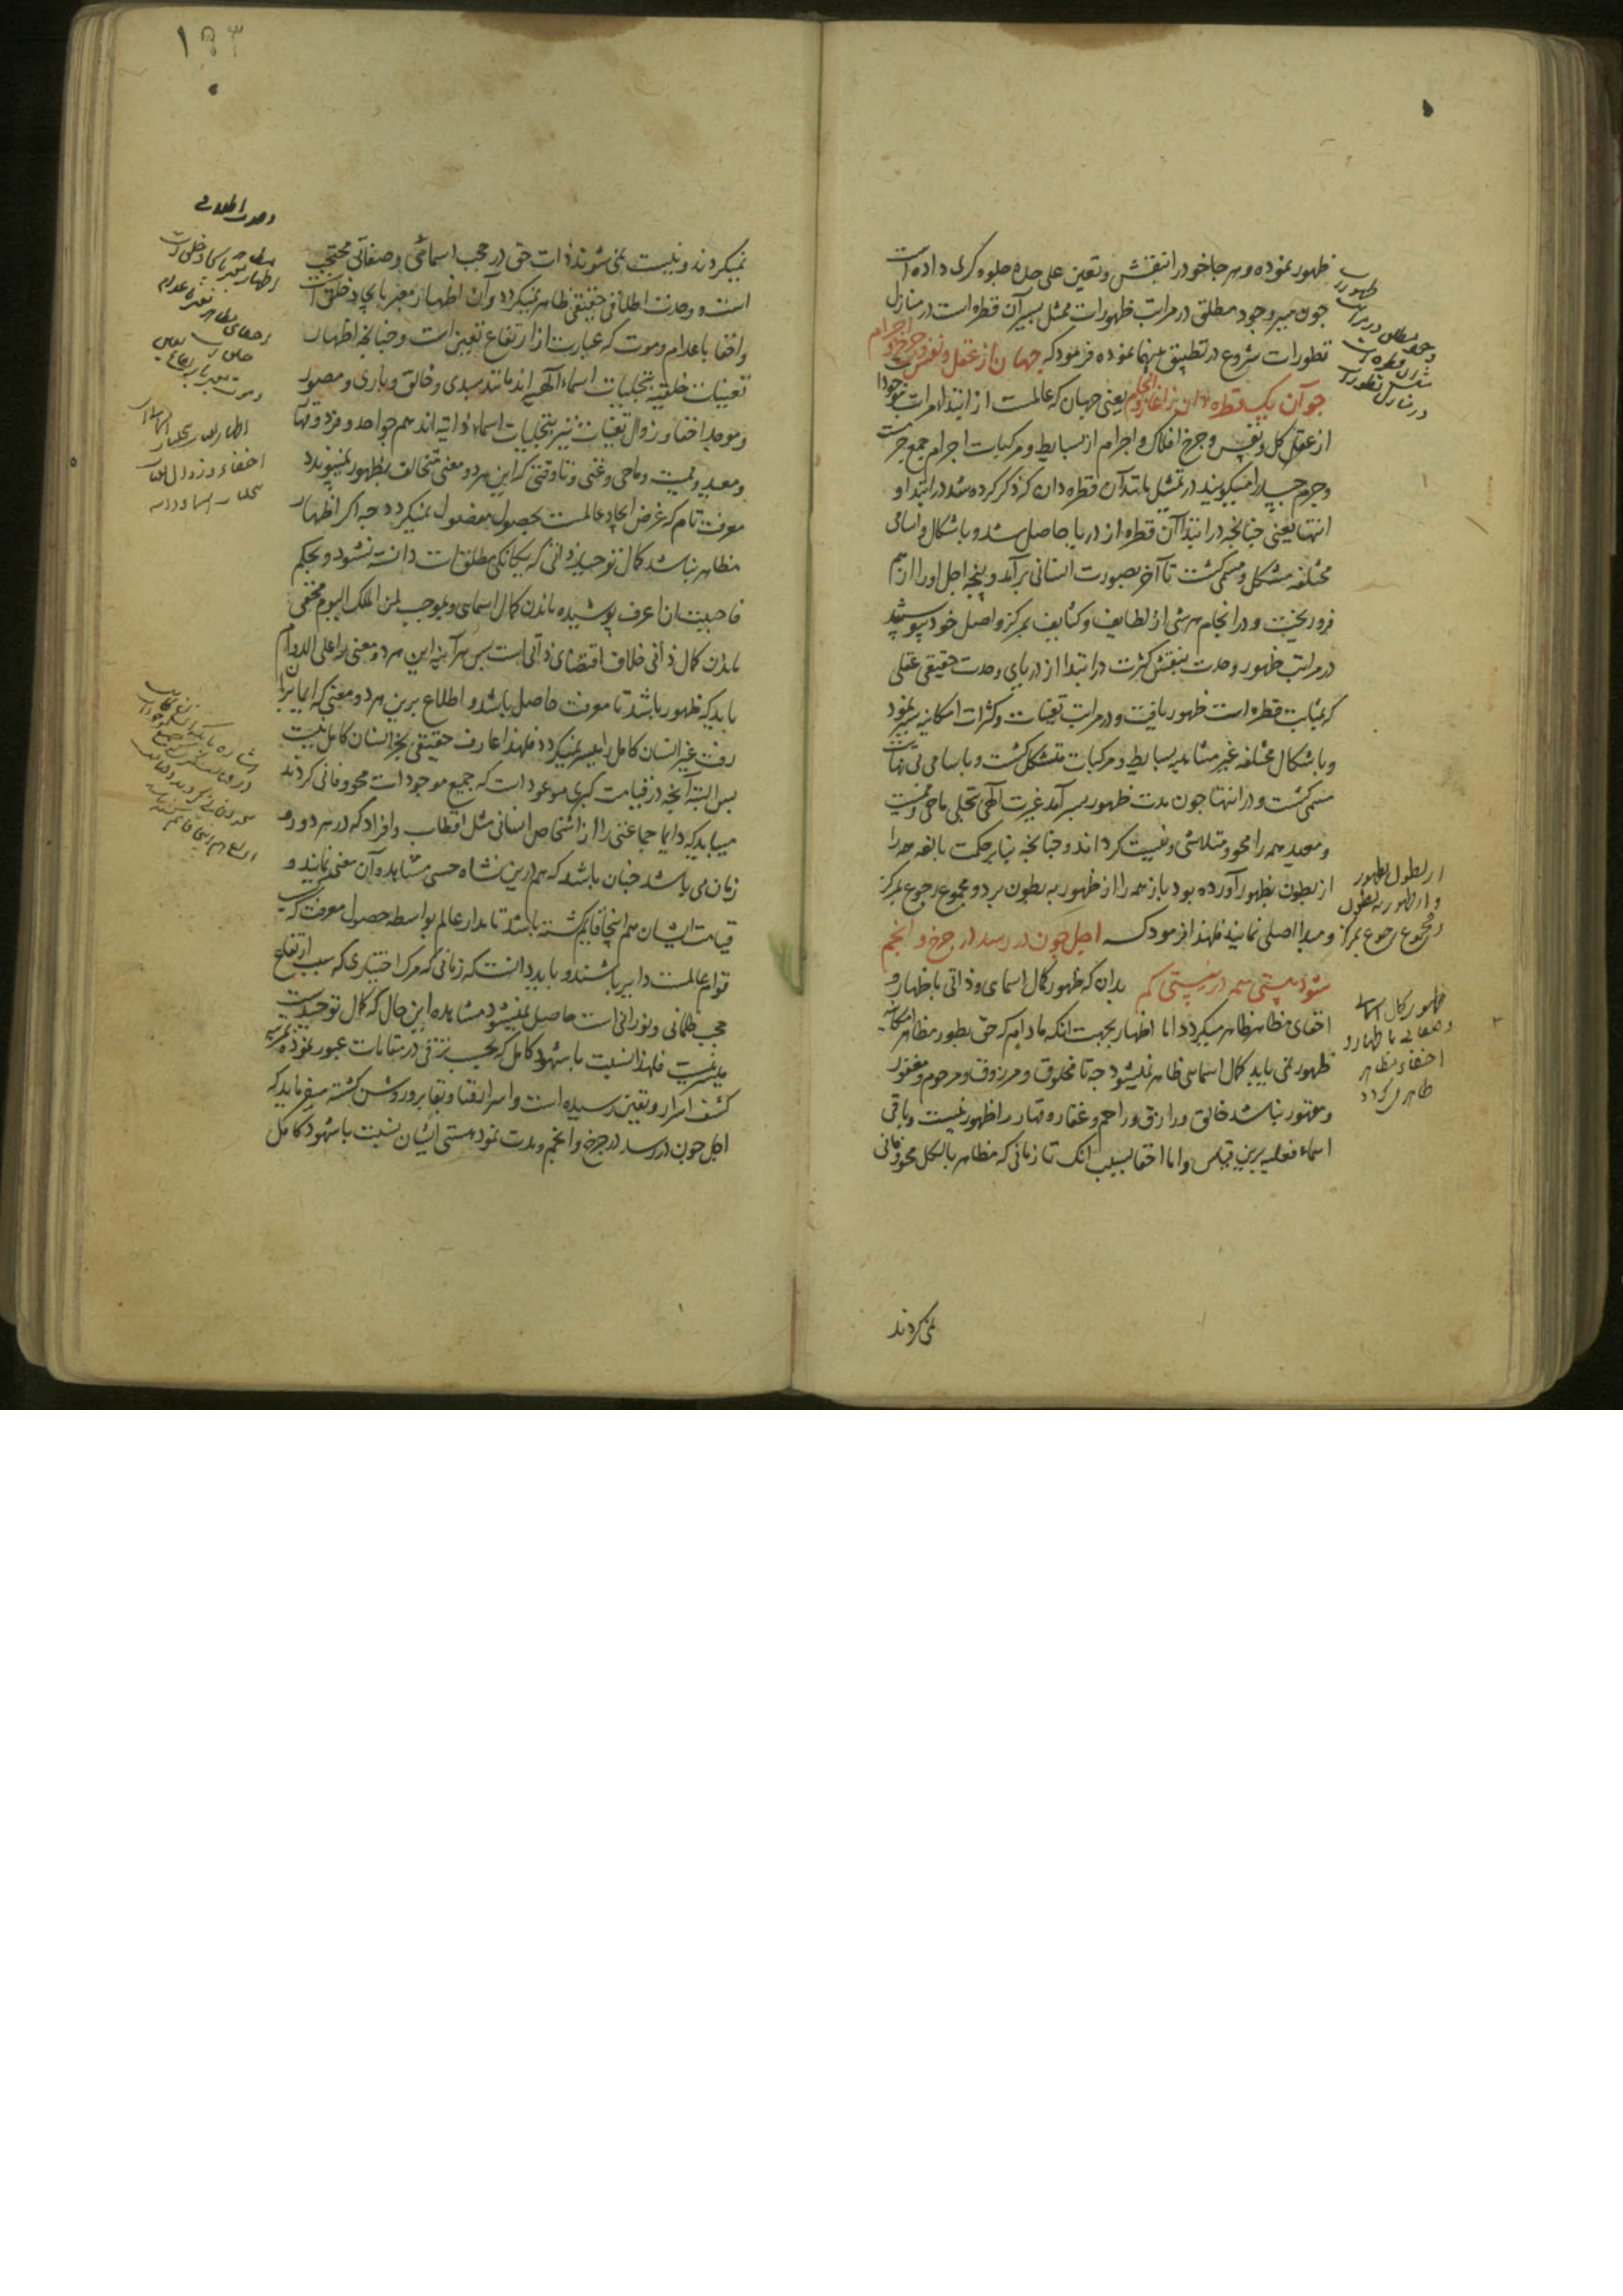 ظهور نموده و هر جا خود را بنقش و تعین علی حده جلوه کری داده است
جون سیر وجود مطلق در مراتب ظهورات ممثل بسیر آن قطره است در منازل
تطورات شروع در تطبیق بینهما نموده فرمود که جهان از عقل و نفس و جرخ و اجرام
جو آن یک قطره دان ز آغاز و انجام یعنی جهان که عالمست از ابتداء مراتب موجودات
از عقل کل و نفس و جرخ افلاک و اجرام از بسایط و مرکبات اجرام جمع جرمست
و جرم جسد را میکویند در تمثیل مانند آن قطره دان که ذکر کرده شد در ابتدا و
انتها یعنی جنانجه در ابتدا آن قطره از دریا حاصل شد و باشکال و اسامی
مختلفه مشکل و مسمی کشت تا آخر بصورت انسانی برآمد و پنجه اجل او را از هم
فرو ریخت و در انجام هر شی از لطایف و کثایف بمرکز و اصل خود پیوستند
در مراتب ظهور وحدت بنقش کثرت در ابتدا از دریای وحدت حقیقی عقلی
که بمثابت قطره است ظهور یافت و در مراتب تعینات و کثرات امکانیه سیر نمود
و باشکال مختلفه غیر متناهیه بسایط و مرکبات متشکل کشت و باسامی بی نهایت
مسمی کشت و در انتها جون مدت ظهور بسر آمد غیرت الهی تجلی ماحی و ممیت
و معید همه را محو و متلاشی و نیست کرداند و جنانجه بنابر حکمت بالغه همه را
از بطون بظهور آورده بود باز همه را از ظهور به بطون برد و مجموع رجوع بمرکز
و مبدا اصلی نمایند فلهذا فرمود که اجل جون در رسد در جرخ و انجم
شود هستی همه در نیستی کم بدان که ظهور کمال اسمای و ذاتی باظهار و
اخفای مظاهر ظاهر میکردد اما اظهار بجهت انکه مادام که حق بطور مظاهر امکانیه
ظهور نمی یابد کمال اسمایی ظاهر نمیشود جه تا مخلوق و مرزوق و مرحوم و مغفور
و مقهور نباشد خالق و رازق و راحم و غفار و قهار را ظهور نیست و باقی
اسماء فعلیه برین قیاس و اما اخفا بسبب انک تا زمانی که مظاهر بالکل محو و فانی
نمی کردند
از بطون بظهور
و از ظهور به بطون
و مجموع رجوع بمرکز
ظهور کمال اسمای
و صفاتی باظهار و
اخفاء مظاهر
ظاهر می کردد
۱۹۳
نمیکردند و نیست نمی شوند ذات حق در حجب اسمائی و صفاتی محتجب
است و وحدت اطلاقی حقیقی ظاهر نمیکردد و آن اظهار معبر بایجاد خلق است
و اخفا باعدام و موت که عبارت از ارتفاع تعین است و جنانجه اظهار
تعینات خلقیه بتجلیات اسماء الهی اند مانند مبدی و خالق و باری و مصور
و موجد اخفا و زوال تعینات نیز بتجلیات اسماء ذاتیه اند همچو احد و فرد و قهار
و معید و ممیت و ماحی و غنی و تا وقتی که این هر دو معنی متخالف بظهور نمیپیوندد
معرفت تام که غرض ایجاد عالمست بحصول موصول نمیکردد جه اکر اظهار
مظاهر نباشد کمال توحید ذاتی که یکانکی مطلق است دانسته نشود و بحکم
فاحببت ان اعرف پوشیده ماندن کمال اسمای و بموجب لمن الملک الیوم مخفی
ماندن کمال ذاتی خلاف اقتضای ذاتی است بس هرآینه این هر دو معنی را علی الدوام
باید که ظهور باشد تا معرفت حاصل باشد و اطلاع برین هر دو معنی که ایما بران
رفت غیر انسان کامل را میسر نمیکردد فلهذا عارف حقیقی بجز انسان کامل نیست
بس البته آنجه در قیامت کبری موعود است که جمیع موجودات محو و فانی کردند
میباید که دایما جماعتی را از اشخاص انسانی مثل اقطاب و افراد که در هر دور و
زمان می باشد جنان باشد که هم درین نشاه حسی مشاهده آن معنی نمایند و
قیامت ایشان هم اینجا قایم کشته باشد تا مدار عالم بواسطه حصول معرفت که سبب
قوام عالمست دایر باشند و باید دانست که زمانی که مرک اختیاری که سبب ارتفاع
حجب ظلمانی و نورانی است حاصل نمیشود مشاهده این حال که کمال توحیدیست
میسر نیست فلهذا نسبت با شهود کامل که بحسب ترقی در مقامات عبور نموده بمرتبه
کشف اسرار و تعین رسیده است و اسرار فنا و بقا برو روشن کشته میفرماید که
اجل جون در رسد در جرخ و انجم و مدت نمود هستی ایشان نسبت با شهود کامل
وحدت اطلاقی